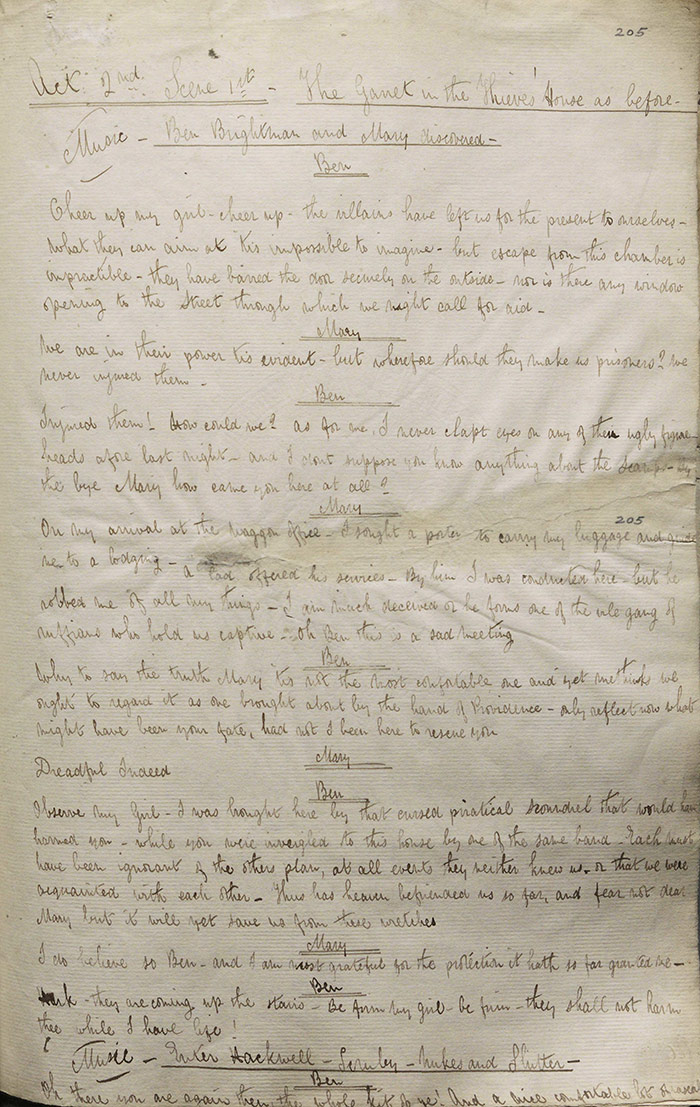 205
Act 2nd. Scene 1st - The Garret in the Thieves' House as before -
Music - Ben Brightman and Mary discovered -
Ben
Cheer up my girl - cheer up - the villains have left us for the present to ourselves -
what they can aim at tis impossible to imagine - but escape from this chamber is
impractible - they have barred the door securely on the outside - nor is there any window
opening to the Street through which we might call for aid -
Mary
We are in their power tis evident - but wherefore should they make us prisoners? we
never injured them -
Ben
Injured them! How could we? as for me, I never clapt eyes on any of their ugly figure
heads afore last night - and I dont suppose you know anything about the scamps - by
the bye Mary how came you here at all?
Mary
On my arrival at the waggon office - I sought a porter to carry my luggage and guide
205
me to a lodging - a lad offered his services - By him I was conducted here - but he
robbed me of all my things - I am much deceived or he forms one of the vile gang of
ruffians who hold us captive - oh Ben this is a sad meeting
Ben
Why to say the truth Mary its not the most comfortable one and yet methinks we
ought to regard it as one brought about by the hand of Providence - only reflect now what
might have been your fate, had not I been here to rescue you
Mary
Dreadful Indeed
Ben
Observe my Girl - I was brought here by that cursed piratical scoundrel that would have
harmed you - while you were inveigled to this house by one of the same band - Each must
have been ignorant of the others plan, at all events they neither knew us - or that we were
acquainted with each other - Thus has heaven befriended us so far, and fear not dear
Mary but it will yet save us from these wretches
Mary
I do believe so Ben - and I am most grateful for the protection it hath so far granted me -
Ben
Hark - they are coming up the stairs - Be firm my girl - be firm - they shall not harm
thee while I have life!
Music - Enter Hackwell - Scruby - Nukes and Slutter -
Ben
Oh there you are again then, the whole kit of ye! And a nice comfortable lot of